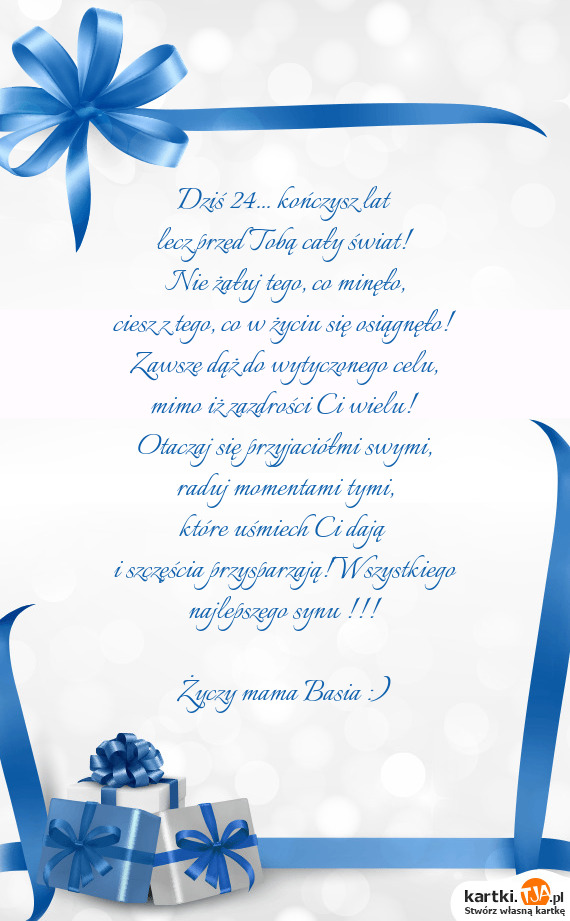 Dziś 24... kończysz lat
lecz przed Tobą cały świat!
Nie żałuj tego, co minęło,
ciesz z tego, co w życiu się osiągnęło!
Zawsze dąż do wytyczonego celu,
mimo iż zazdrości Ci wielu!
Otaczaj się przyjaciółmi swymi,
raduj momentami tymi,
które uśmiech Ci dają
i szczęścia przysparzają! Wszystkiego
najlepszego synu !!!
Życzy mama Basia :)
kartki.TJA.pl
Stwórz własną kartkę